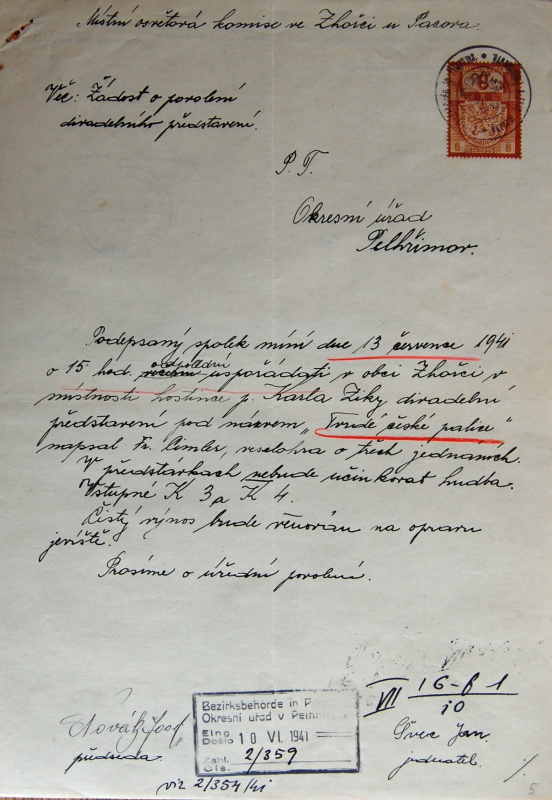 Místní osvětová komise ve Zhořci u Pacova
Věc: Žádost o povolení
divadelního představení.
8 8
P. T.
Okresní úřad
Pelhřimov.
Podepsaný spolek míní dne 13 července 1941
o 15 hod. odpolední uspořádati v obci Zhořci v
místnosti hostince p. Karla Ziky divadelní
představení pod názvem „Tvrdé české palice“
napsal Fr. Cimler, veselohra o třech jednáních.
V představkach nebude učinkovat hudba.
Vstupné K 3 a K 4.
Čistý výnos bude věnován na opravu
jeviště.
Prosíme o úřední povolení.
Novák Josef
předseda
Bezirksbehörde in P
Okresní úřad v Pelhřim
Eing.
Došlo 10 VI. 1941
Zahl.
Čís. 2/359
viz 2/354/41
VII 16-6 1
10
Švec Jan
jednatel.
5